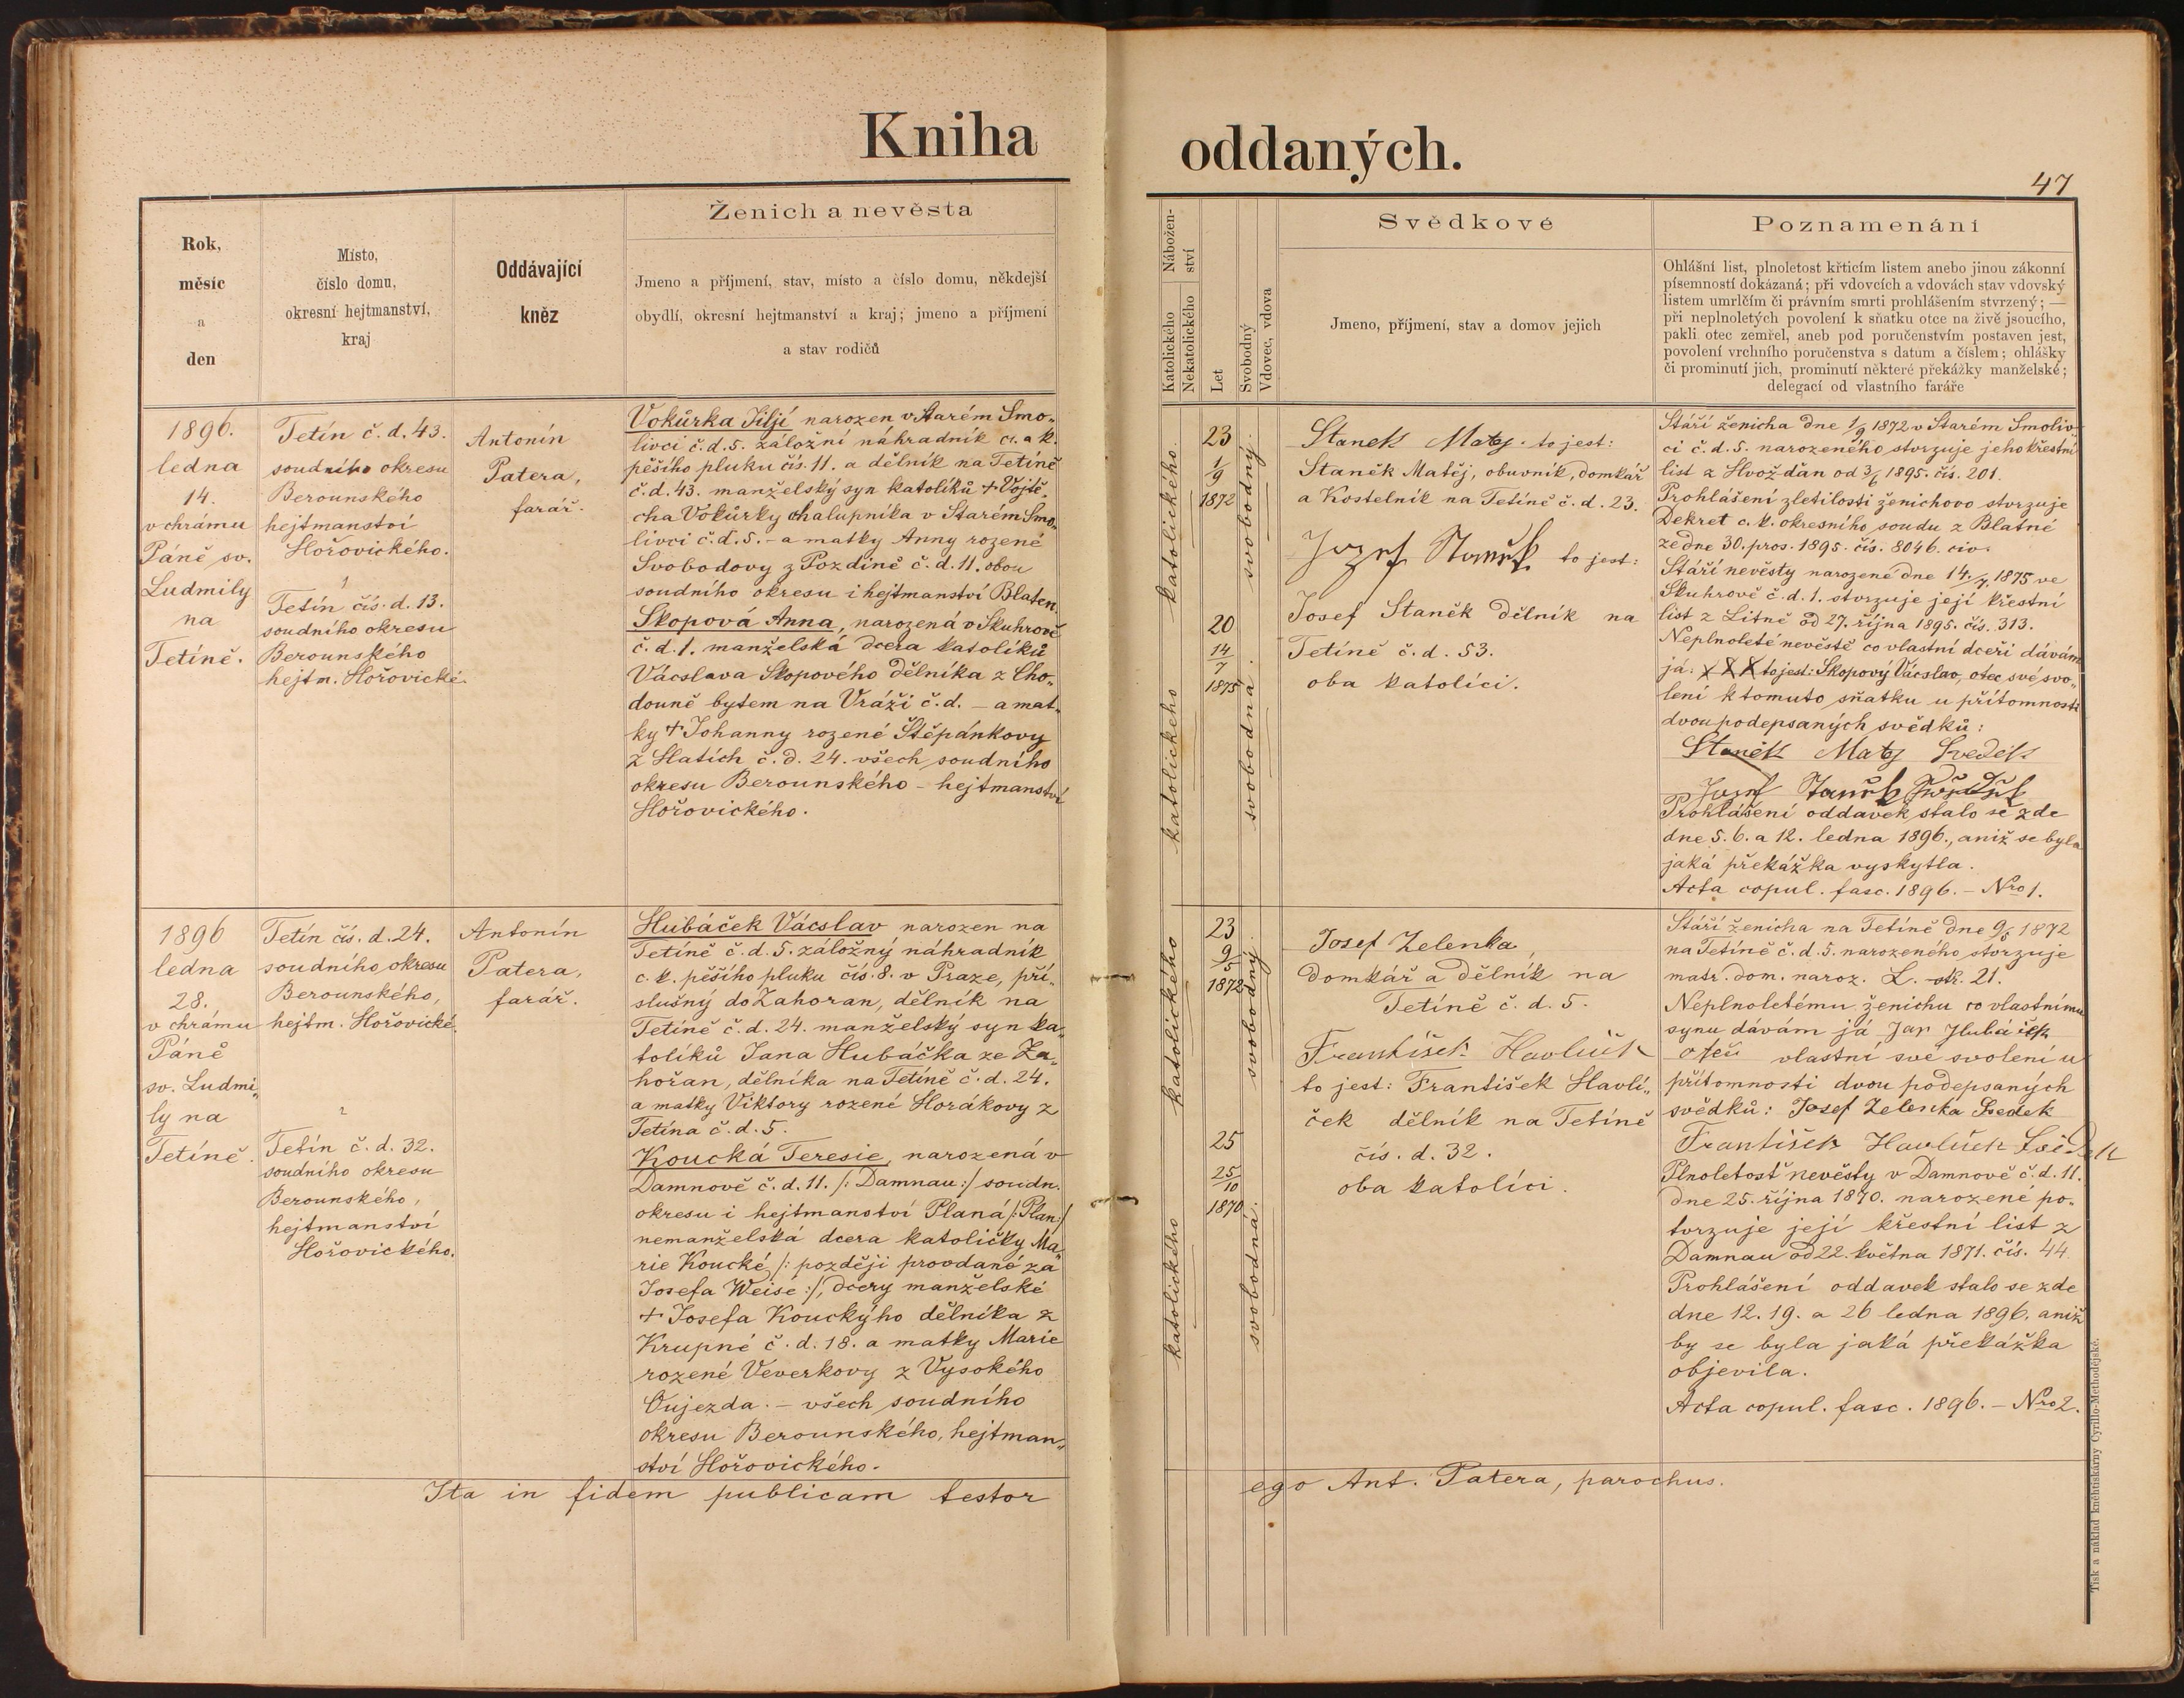 Kniha oddaných.
47
Rok,
měsíc
a
den
Místo,
číslo domu,
okresní hejtmanství,
kraj
Oddávající
kněz
Ženich a nevěsta
Jmeno a příjmení, stav, místo a číslo domu, někdejší
obydlí, okresní hejtmanství a kraj; jmeno a příjmení
a stav rodičů
Nábožen-
ství
Katolického
Nekatolického
Let
Svobodný
Vdovec, vdova
Svědkové
Jmeno, příjmení, stav a domov jejich
Poznamenání
Ohlášní list, plnoletost křticím listem anebo jinou zákonní
písemností dokázaná; při vdovcích a vdovách stav vdovský
listem umrlčím či právním smrti prohlášením stvrzený; —
při neplnoletých povolení k sňatku otce na živě jsoucího,
pakli otec zemřel, aneb pod poručenstvím postaven jest,
povolení vrchního poručenstva s datum a číslem; ohlášky
či prominutí jich, prominutí některé překážky manželské;
delegací od vlastního faráře
1896.
ledna
14.
v chrámu
Páně sv.
Ludmily
na
Tetíně.
Tetín č. d. 43.
soudního okresu
Berounského
hejtmanství
Hořovického.
Tetín čís. d. 13.
soudního okresu
Berounského
hejtm. Hořovické.
Antonín
Patera,
farář.
Vokůrka Jiljí narozen v Starém Smo-
livci č. d. 5. záložní náhradník c. a k.
pěšího pluku čís. 11. a dělník na Tetíně
č. d. 43. manželský syn katolíků + Vojtě-
cha Vokůrky chalupníka v Starém Smo-
livci č. d. 5. - a matky Anny rozené
Svobodovy z Pozdině č. d. 11. obou
soudního okresu i hejtmanství Blaten.
Skopová Anna, narozená v Skuhrově
č. d. 1. manželská dcera katolíků
Vácslava Skopového dělníka z Cho-
douně bytem na Vráži č. d. - a mat-
ky + Johanny rozené Štěpánkovy
z Hatích č. d. 24. všech soudního
okresu Berounského - hejtmanství
Hořovického.
katolického
katolického
23
1/9
1872
20
14/7
1875
svobodný.
svobodná.
Stanek Matěj to jest:
Staněk Matěj, obuvník, domkář
a Kostelník na Tetíně č. d. 23.
Jozef Staněk to jest:
Josef Staněk dělník na
Tetíně č. d. 53.
oba katolíci.
Stáří ženicha dne 1/9 1872 v Starém Smoliv-
ci č. d. 5. narozeného stvrzuje jeho křestní
list z Hvožďan od 3/6 1895. čís. 201.
Prohlášení zletilosti ženichovo stvrzuje
Dekret c. k. okresního soudu z Blatné
ze dne 30. pros. 1895. čís. 8046. civ.
Stáří nevěsty narozené dne 14./7. 1875 ve
Skuhrově č. d. 1. stvrzuje její křestní
list z Litně od 27. října 1895. čís. 313.
Neplnoleté nevěstě co vlastní dceři dávám
já: X X X to jest: Skopový Vácslav, otec své svo-
lení k tomuto sňatku u přítomnosti
dvou podepsaných svědků:
Stanek Matěj Svedek
Jozef Staněk Svědek
Prohlášení oddavek stalo se zde
dne 5. 6. a 12. ledna 1896., aniž se byla
jaká překážka vyskytla.
Acta copul. fasc. 1896. - Nro 1.
1896
ledna
28.
v chrámu
Páně
sv. Ludmi-
ly na
Tetíně.
Tetín čís. d. 24.
soudního okresu
Berounského,
hejtm. Hořovické.
Tetín č. d. 32.
soudního okresu
Berounského,
hejtmanství
Hořovického.
Antonín
Patera,
farář.
Hubáček Vácslav narozen na
Tetíně č. d. 5. záložný náhradník
c. k. pěšího pluku čís. 8. v Praze, pří-
slušný do Zahoran, dělník na
Tetíně č. d. 24. manželský syn ka-
tolíků Jana Hubáčka ze Za-
hořan, dělníka na Tetíně č. d. 24.
a matky Viktory rozené Horákovy z
Tetína č. d. 5.
Koucká Teresie, narozená v
Damnově č. d. 11. /: Damnau :/ soudn.
okresu i hejtmanství Planá /: Plan :/
nemanželská dcera katoličky Ma-
rie Koucké /: později provdané za
Josefa Weise :/, dcery manželské
+ Josefa Kouckýho dělníka z
Krupné č. d. 18. a matky Marie
rozené Veverkovy z Vysokého
Oujezda. - všech soudního
okresu Berounského, hejtman-
ství Hořovického.
katolického
katolického
23
9/5
1872
25
25/10
1870
svobodný
svobodná.
Josef Zelenka,
domkář a dělník na
Tetíně č. d. 5.
František Havlíček
to jest: František Havlí-
ček dělník na Tetíně
čís. d. 32.
oba katolíci.
Stáří ženicha na Tetíně dne 9/5 1872
na Tetíně č. d. 5. narozeného stvrzuje
matr. dom. naroz. L. str. 21.
Neplnoletému ženichu co vlastnímu
synu dávám já Jan Hubáček
otec vlastní své svolení u
přítomnosti dvou podepsaných
svědků: Josef Zelenka Svedek
František Havlíček Svědek
Plnoletost nevěsty v Damnově č. d. 11.
dne 25. října 1870. narozené po-
tvrzuje její křestní list z
Damnau od 22. května 1871. čís. 44.
Prohlášení oddavek stalo se zde
dne 12. 19. a 26 ledna 1896. aniž
by se byla jaká překážka
objevila.
Acta copul. fasc. 1896. - Nro 2.
Ita in fidem publicam testor ego Ant. Patera, parochus.
Tisk a náklad knihtiskárny Cyrillo-Methodějské.